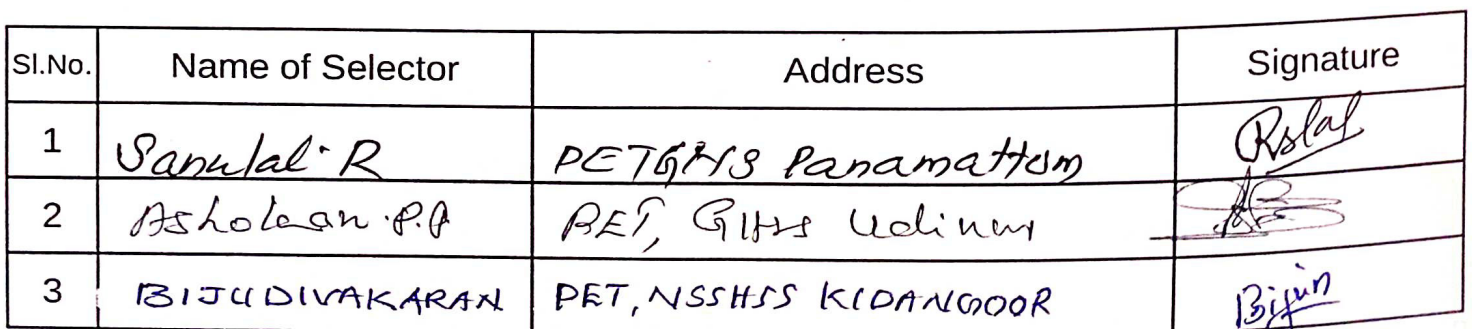 Sl.No. Name of Selector Address Signature
1 Sanulal. R PET GHS Panamattom Rslal
2 Ashokan. P.P PET, GHSS Udinur
3 BIJU DIVAKARAN PET, NSSHSS KIDANGOOR Bijun